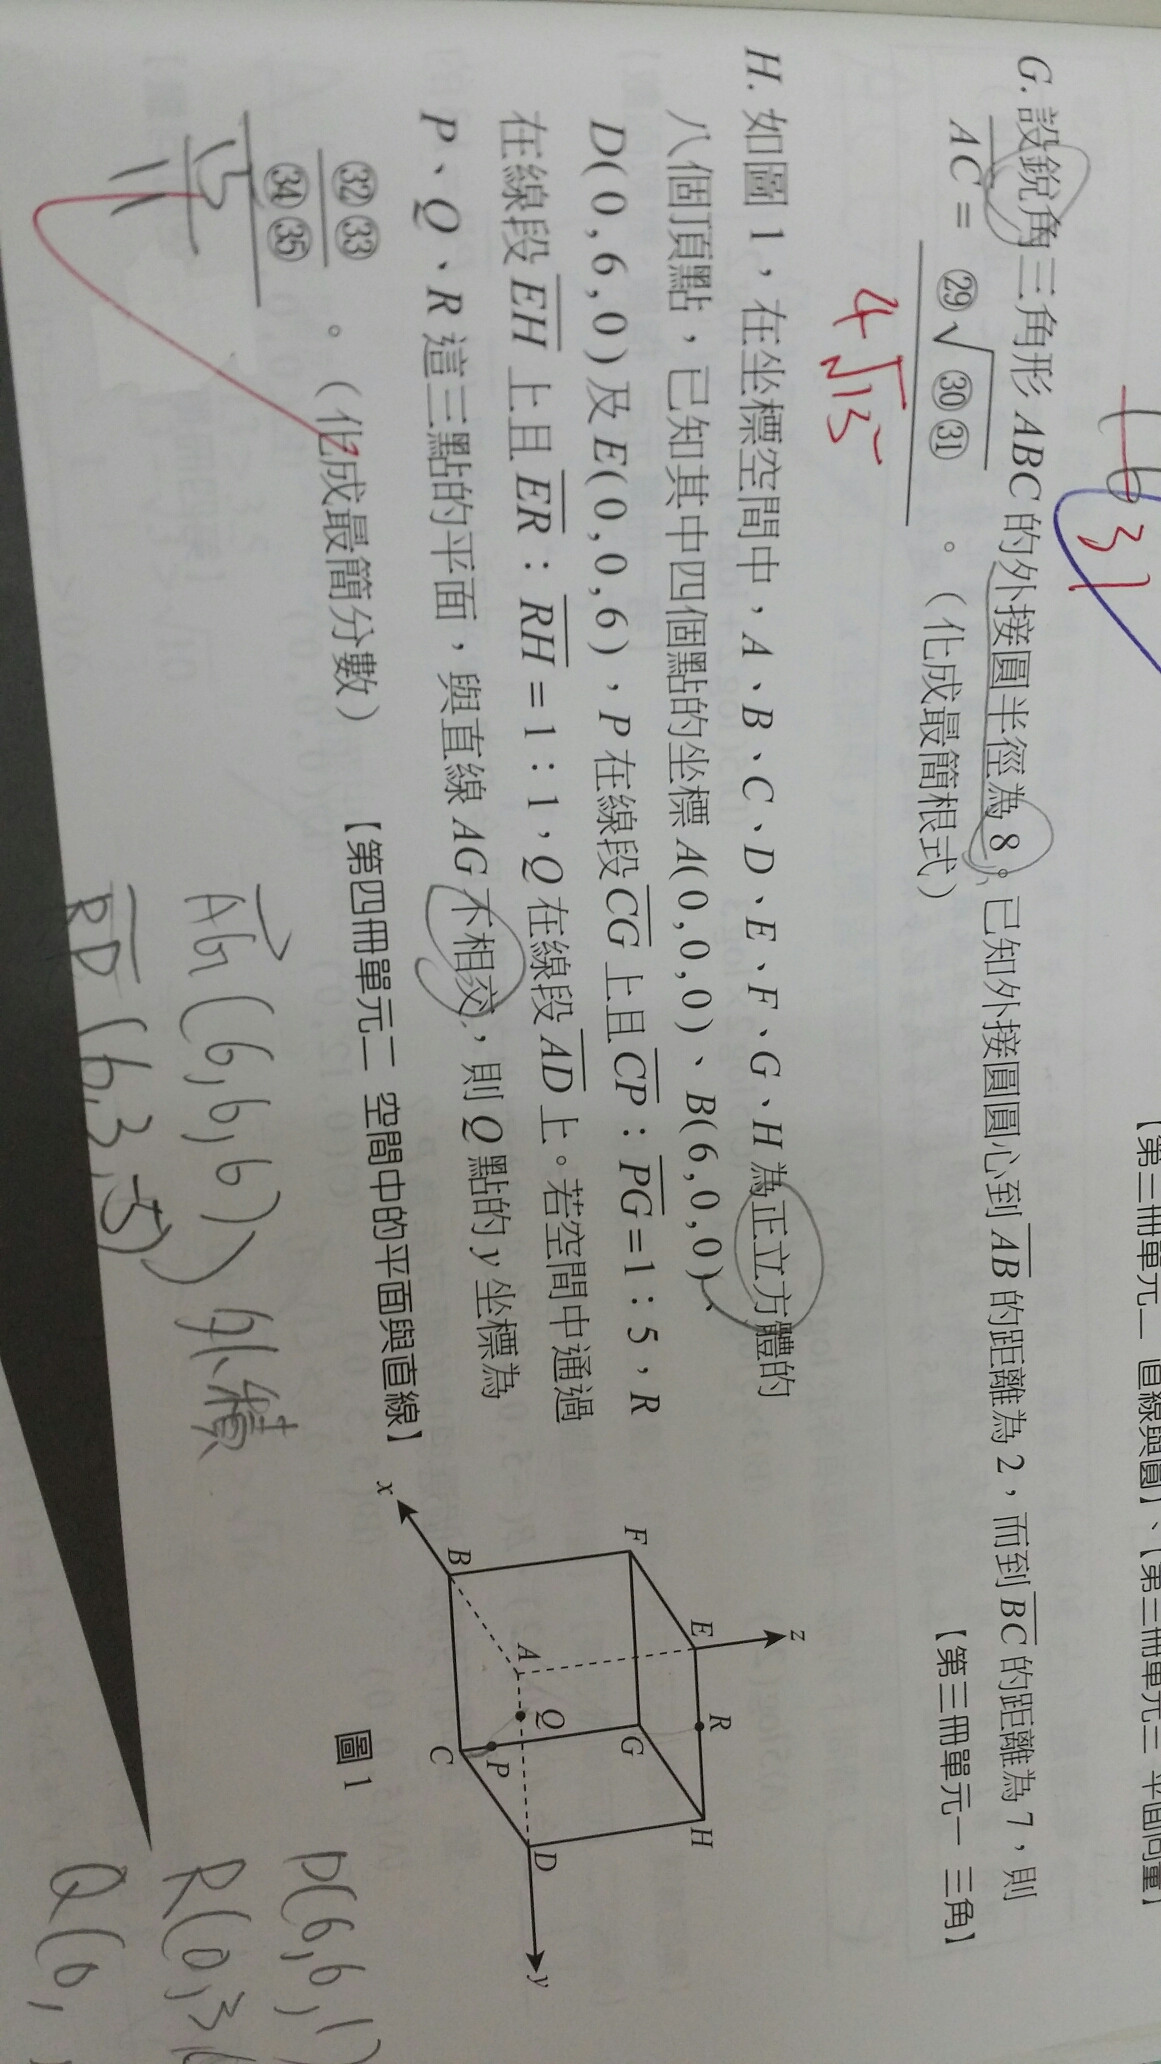 【第三冊單元二 直線與圓】、【第三冊單元三 平面向量】
G. 設銳角三角形 ABC 的外接圓半徑為 8。已知外接圓圓心到 AB 的距離為 2，而到 BC 的距離為 7，則
AC = ㉙√㉚㉛ 。（化成最簡根式）
【第三冊單元一 三角】
4√15
H. 如圖 1，在坐標空間中，A、B、C、D、E、F、G、H 為正立方體的
八個頂點，已知其中四個點的坐標 A(0,0,0)、B(6,0,0)、
D(0,6,0) 及 E(0,0,6)，P 在線段 CG 上且 CP：PG = 1：5，R
在線段 EH 上且 ER：RH = 1：1，Q 在線段 AD 上。若空間中通過
P、Q、R 這三點的平面，與直線 AG 不相交，則 Q 點的 y 坐標為
㉜㉝
㉞㉟ 。（化成最簡分數）
【第四冊單元二 空間中的平面與直線】
15
11
AG (6,6,6)
RP (6,3,-5)
外積
z
E
R
H
F
G
A
Q
P
B
C
D
x
y
圖 1
P(6,6,1)
R(0,3,6
Q(0,